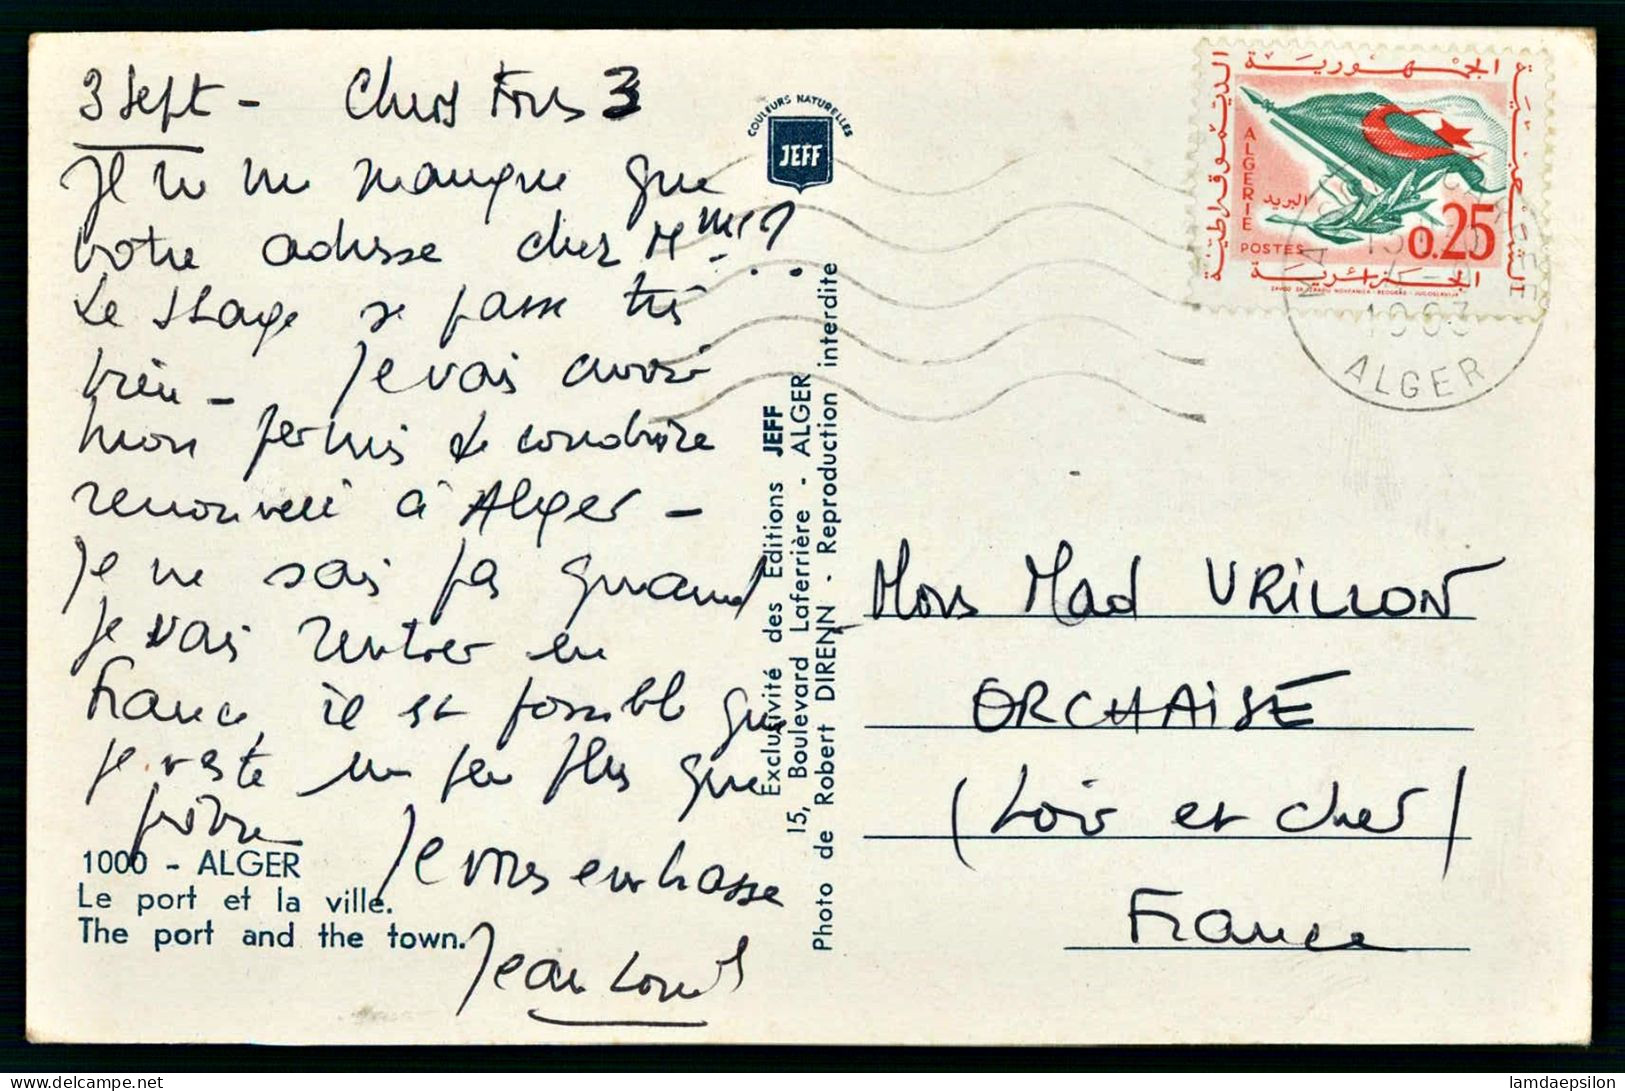 3 Sept - Chers tous 3
Il ne me manque que
votre adresse chez Mme ?..
Le stage se passe très
bien - Je vais avoir
mon permis de conduire
renouvelé à Alger -
Je ne sais pas quand
je vais rentrer en
France, il est possible que
je reste un peu plus que
prévu
Je vous embrasse
Jean Louis
1000 - ALGER
Le port et la ville.
The port and the town.
COULEURS NATURELLES
JEFF
Exclusivité des Editions JEFF
15, Boulevard Laferrière - ALGER
Photo de Robert DIRENN - Reproduction interdite
الجمهورية
الديمقراطية
الشعبية
الجزائرية
ALGERIE
البريد
POSTES
0.25
1963
ALGER
Mons Mad VRILLON
ORCHAISE
(Loir et Cher)
France
lamdaepsilon
delcampe.net